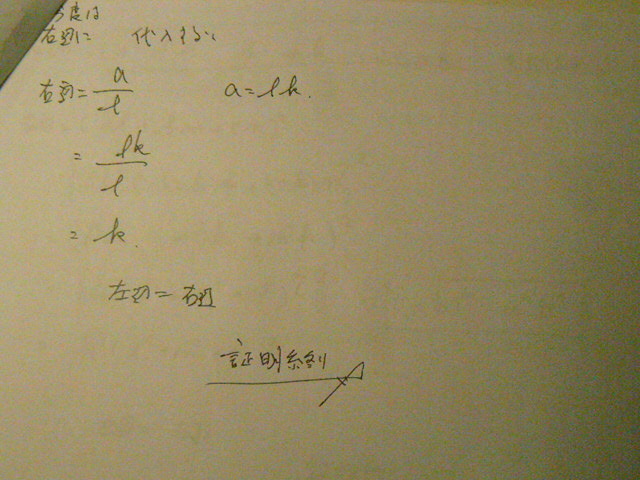 今度は
右辺に 代入すると
右辺 = a/l a = lk.
= lk/l
= k.
左辺 = 右辺
証明終り